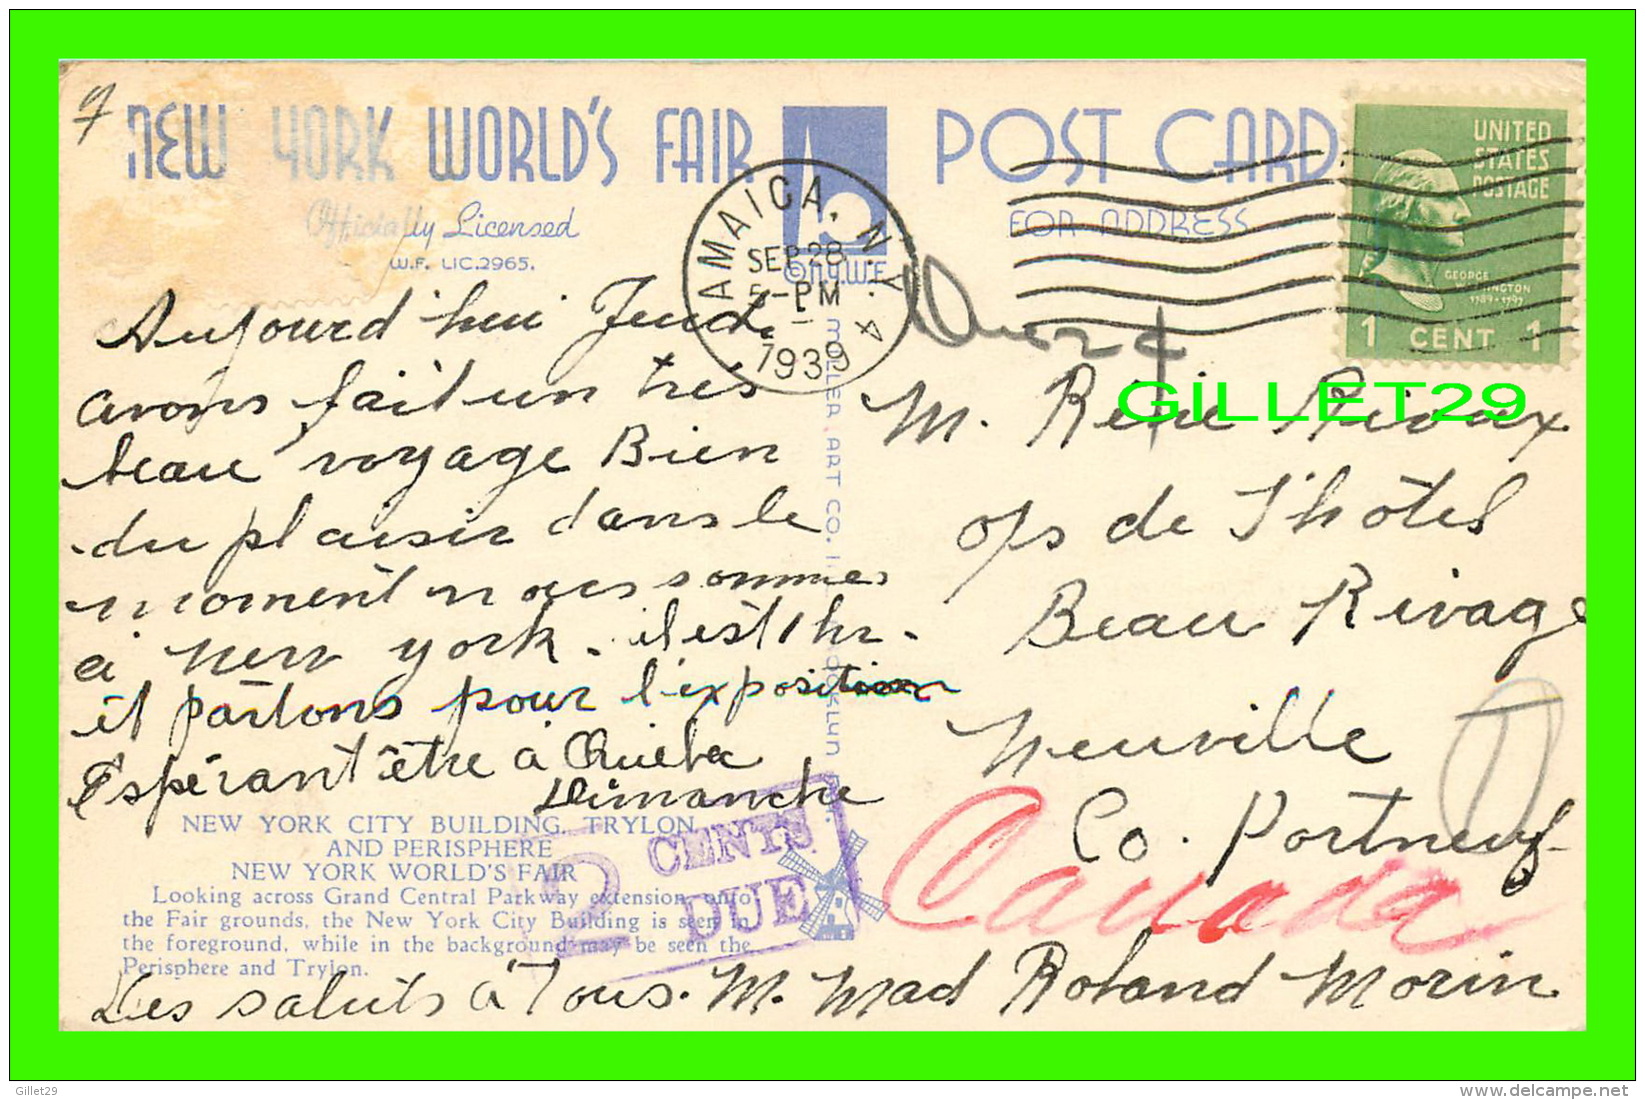 NEW YORK WORLD'S FAIR
Officially Licensed
W.F. LIC.2965.
POST CARD
FOR ADDRESS
©N.Y.W.F.
JAMAICA, N.Y.
SEP 28
5-PM
1939
UNITED
STATES
POSTAGE
GEORGE
WASHINGTON
1789-1797
1 CENT 1
Aujourd'hui Jeudi
avons fait un très
beau voyage Bien
du plaisir dans le
moment nous sommes
à New York. il est 1 hr.
et partons pour l'exposition
Espérant être à Québec
Dimanche
GILLET29
M. René Rivax
o/s de l'hôtel
Beau Rivage
Neuville
Co. Portneuf
Canada
T
MILLER ART CO. INC. BROOKLYN
2 CENTS
DUE
NEW YORK CITY BUILDING, TRYLON
AND PERISPHERE
NEW YORK WORLD'S FAIR
Looking across Grand Central Parkway extension, onto
the Fair grounds, the New York City Building is seen in
the foreground, while in the background may be seen the
Perisphere and Trylon.
Mes saluts à Tous. M. Mad Roland Morin
Gillet29
www.delcampe.net